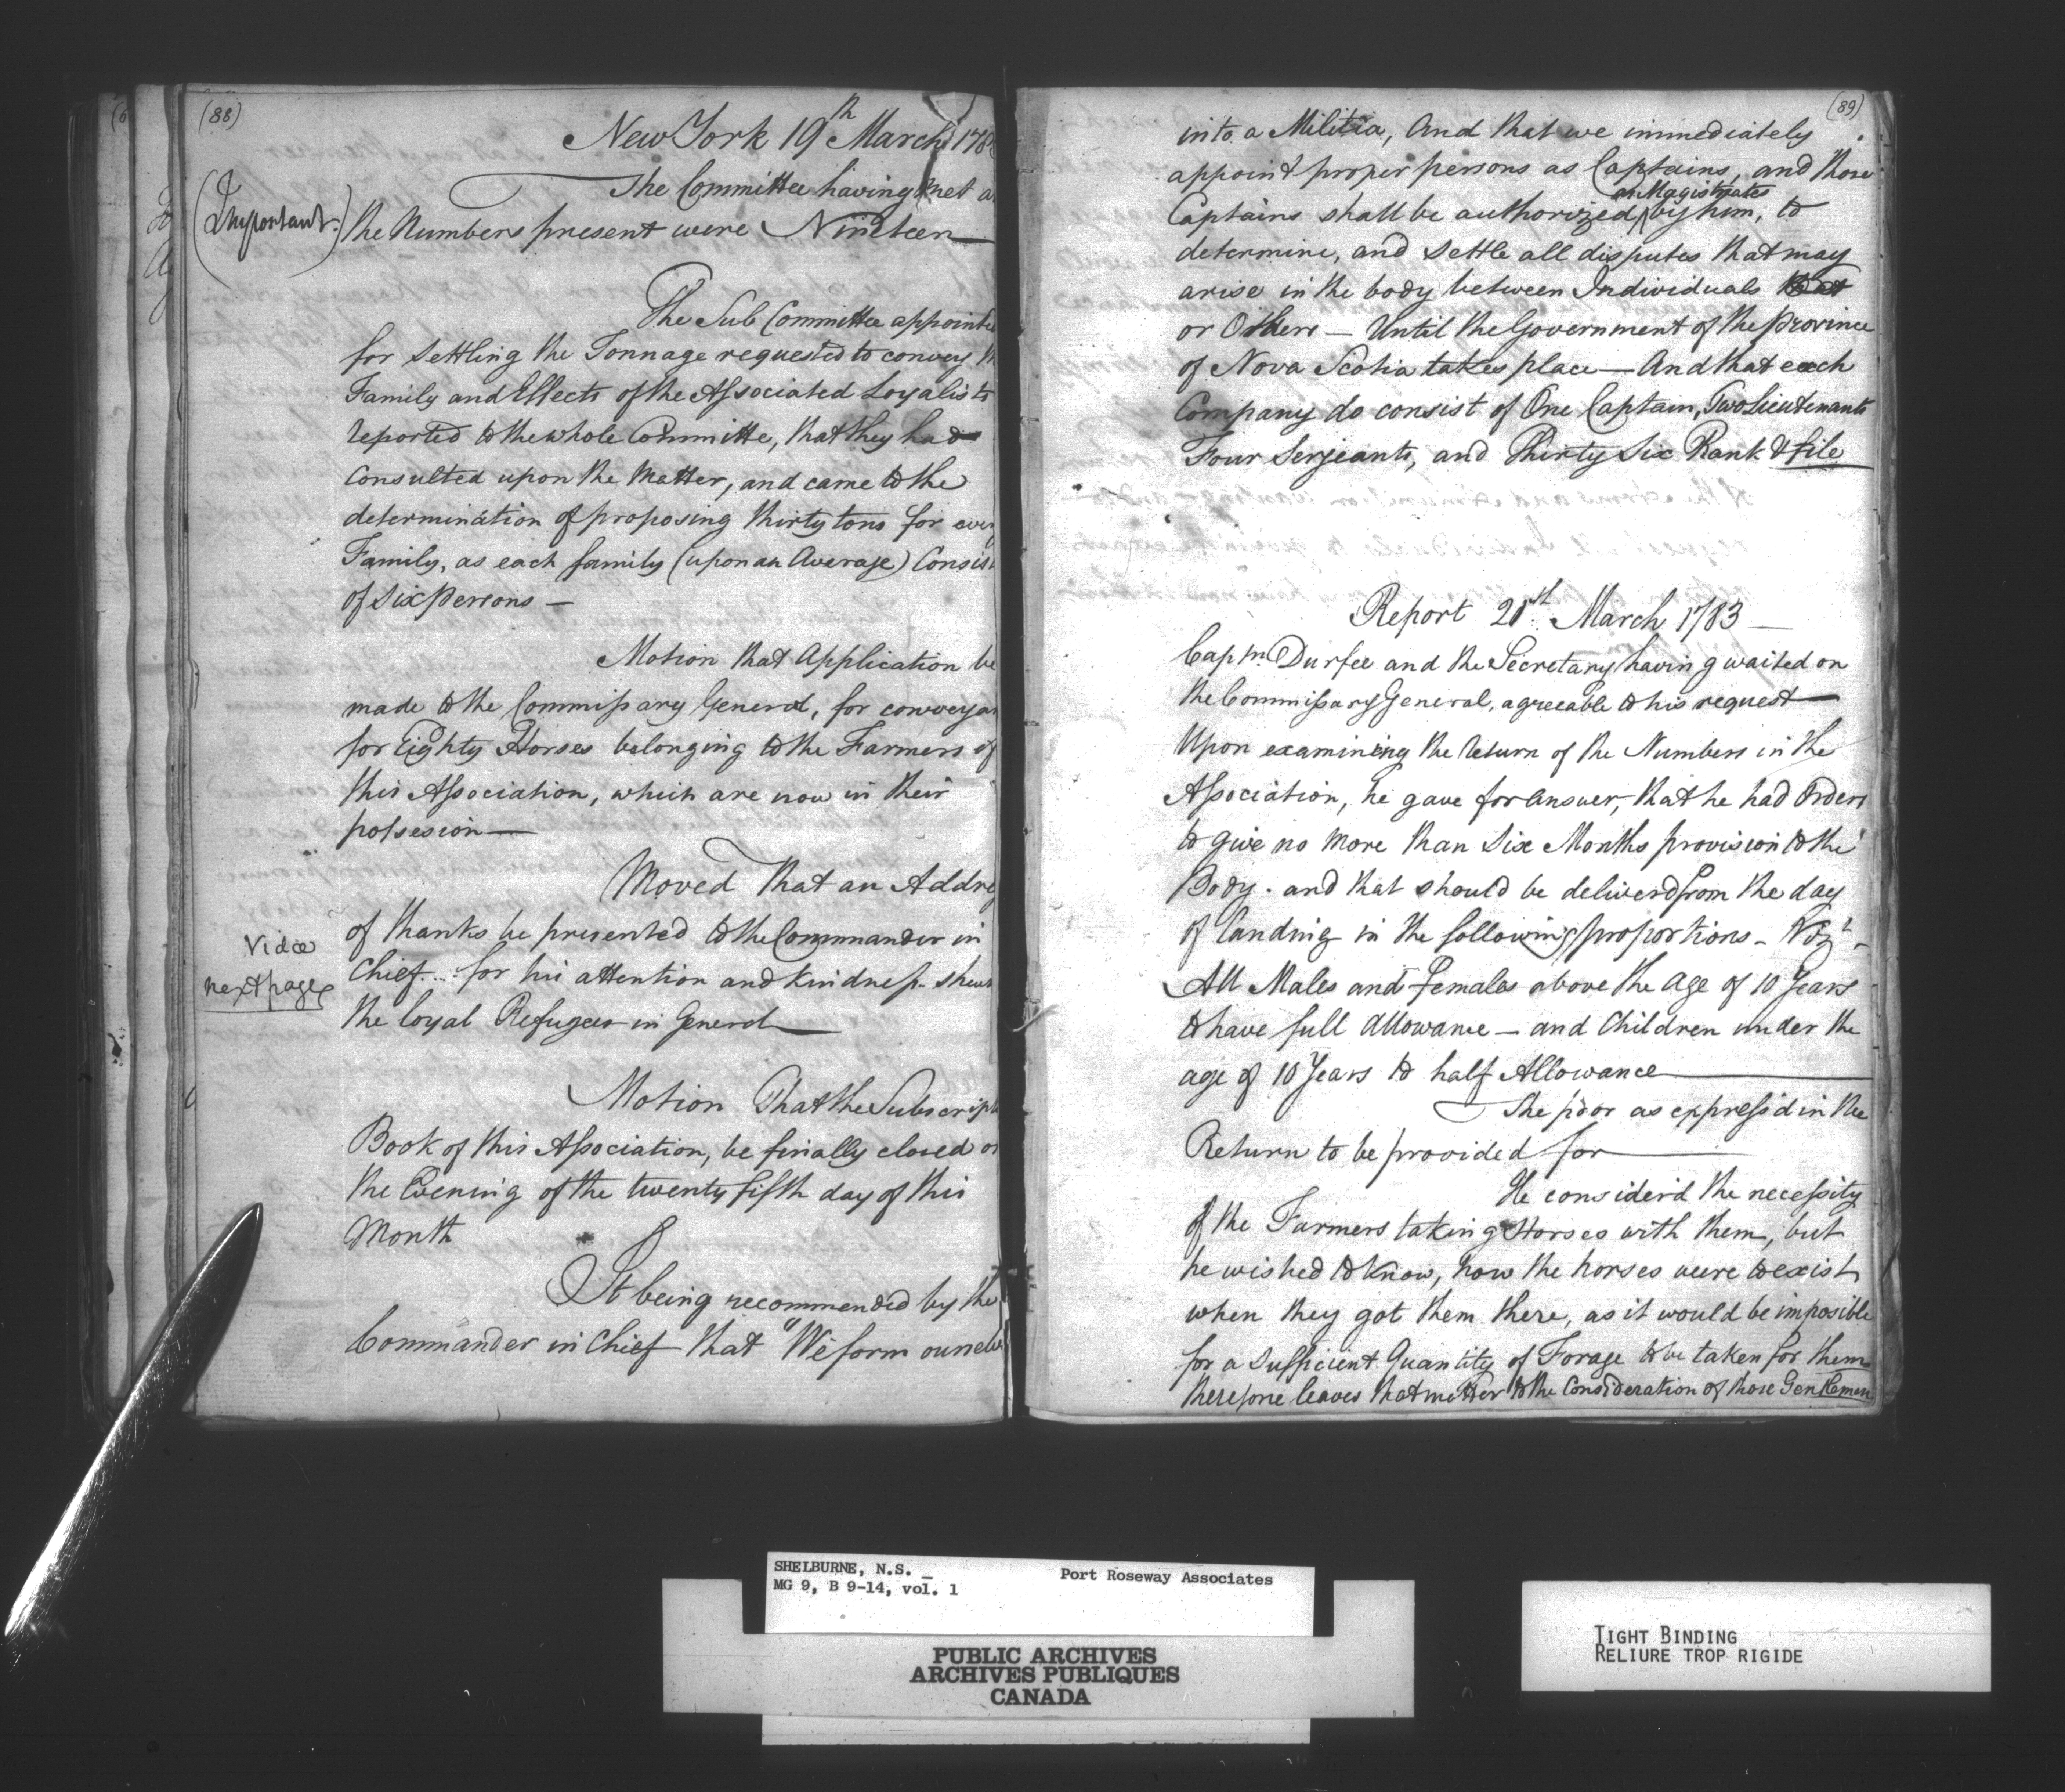 (88)
New York 19th March 178
The Committee having met a
(Important.)
the Numbers present were Nineteen—
The Sub Committee appointe
for Settling the Tonnage requested to convey th
Family and Effects of the Associated Loyalists
reported to the whole Committe, that they had
Consulted upon the Matter, and came to the
determination of proposing thirty tons for ever
Family, as each family (upon an Average) Consis
of Six Persons —
Motion that Application be
made to the Commissary General, for conveyan
for Eighty Horses belonging to the Farmers of
this Association, which are now in their
possesion —
Moved That an Addre
of thanks be presented to the Commander in
Chief... for his attention and kindness shewn
the loyal Refugees in General —
Vide
next page
Motion That the Subscript
Book of this Association, be finally closed on
the Evening of the twenty fifth day of this
Month
It being recommended by the
Commander in Chief that "We form ourselv
(89)
into a Militia, And that we immediately
appoint proper persons as Captains, and those
as Magistrates
Captains shall be authorized ^ by him, to
determine, and Settle all disputes that may
arise in the body between Individuals
or Others — Until the Government of the Province
of Nova Scotia takes place — And that each
Company do consist of One Captain, Two Lieutenants
Four Serjeants, and Thirty Six Rank & file
Report 21st March 1783 —
Captn. Durfee and the Secretary having waited on
the Commissary General, agreeable to his request —
Upon examining the Return of the Numbers in the
Association, he gave for answer, that he had Orders
to give no more than Six Months provision to the
Body. and that should be deliverd from the day
of landing in the following proportions - Vizt. -
All Males and Females above the Age of 10 Years
to have full Allowance — and Children under the
age of 10 Years to half Allowance —
The poor as express'd in the
Return to be provided for —
He consider'd the necessity
of the Farmers taking Horses with them, but
he wished to know, how the horses were to exist
when they got them there, as it would be imposible
for a Sufficient Quantity of Forage to be taken for them
therefore leaves that matter to the Consideration of those Gentlemen
SHELBURNE, N.S. _ Port Roseway Associates
MG 9, B 9-14, vol. 1
PUBLIC ARCHIVES
ARCHIVES PUBLIQUES
CANADA
TIGHT BINDING
RELIURE TROP RIGIDE